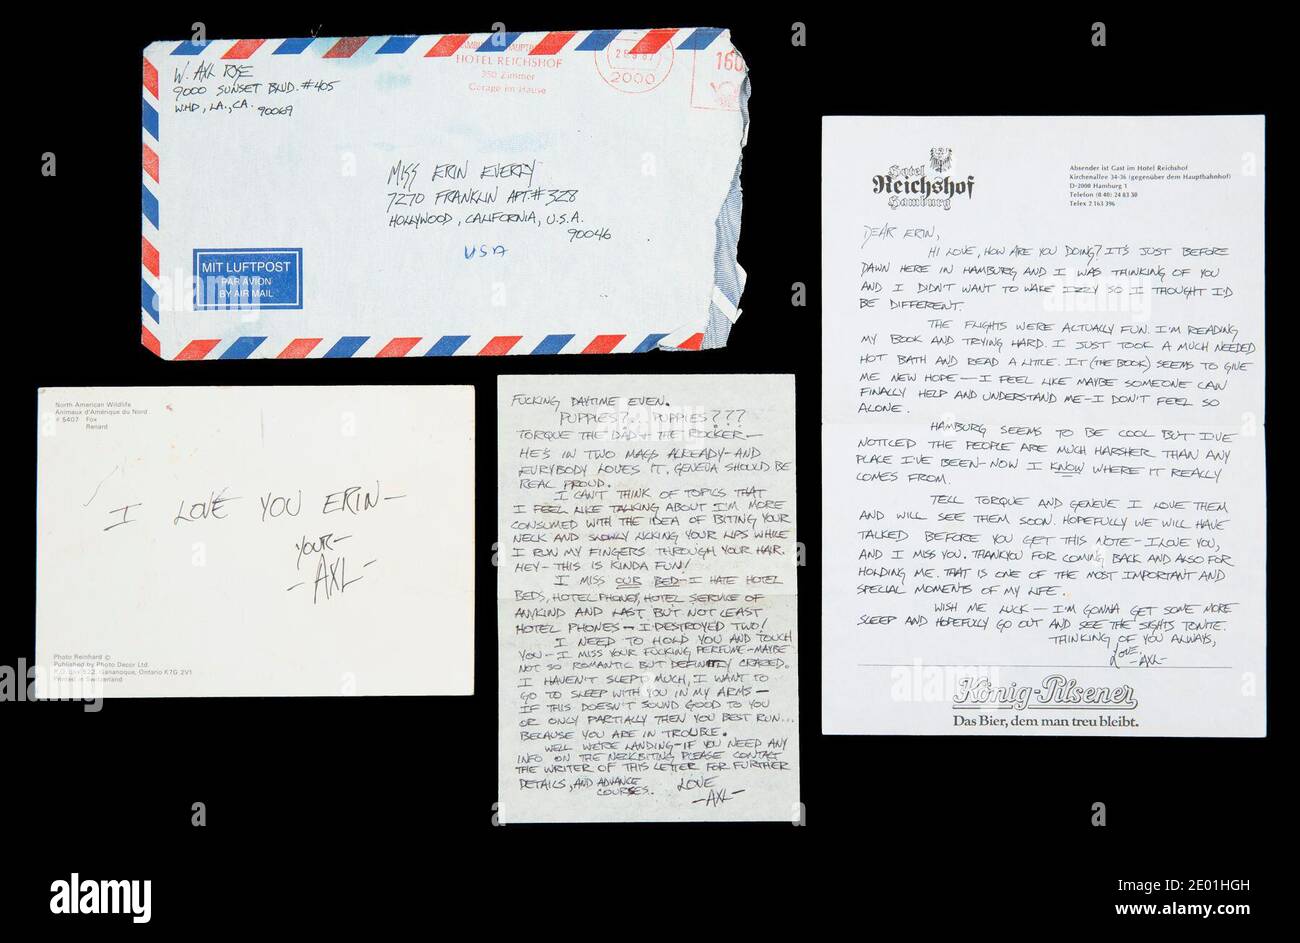 W. AXL ROSE
9000 SUNSET BLVD. #405
WHD, LA., CA. 90069
HOTEL REICHSHOF
250 Zimmer
Garage im Hause
2000
160
MISS ERIN EVERLY
7270 FRANKLIN APT.# 328
HOLLYWOOD, CALIFORNIA, U.S.A.
90046
USA
MIT LUFTPOST
PAR AVION
BY AIR MAIL
North American Wildlife
Animaux d'Amérique du Nord
# 5407 Fox
Renard
I LOVE YOU ERIN—
YOUR—
—AXL—
Photo Reinhard ©
Published by Photo Decor Ltd.
P.O. Box 522, Gananoque, Ontario K7G 2V1
Printed in Switzerland
FUCKING DAYTIME EVEN.
PUPPIES?.. PUPPIES???
TORQUE THE DAD— THE ROCKER—
HE'S IN TWO MAGS ALREADY— AND
EVRYBODY LOVES IT. GENEVA SHOULD BE
REAL PROUD.
I CAN'T THINK OF TOPICS THAT
I FEEL LIKE TALKING ABOUT I'M MORE
CONSUMED WITH THE IDEA OF BITING YOUR
NECK AND SLOWLY LICKING YOUR LIPS WHILE
I RUN MY FINGERS THROUGH YOUR HAIR.
HEY— THIS IS KINDA FUN!
I MISS OUR BED— I HATE HOTEL
BEDS, HOTEL PHONES, HOTEL SERVICE OF
ANYKIND AND LAST BUT NOT LEAST
HOTEL PHONES— I DESTROYED TWO!
I NEED TO HOLD YOU AND TOUCH
YOU— I MISS YOUR FUCKING PERFUME— MAYBE
NOT SO ROMANTIC BUT DEFINITLY CRAZED.
I HAVEN'T SLEPT MUCH, I WANT TO
GO TO SLEEP WITH YOU IN MY ARMS—
IF THIS DOESN'T SOUND GOOD TO YOU
OR ONLY PARTIALLY THEN YOU BEST RUN...
BECAUSE YOU ARE IN TROUBLE.
WELL WE'RE LANDING— IF YOU NEED ANY
INFO ON THE NECKBITING PLEASE CONTACT
THE WRITER OF THIS LETTER FOR FURTHER
DETAILS, AND ADVANCE
COURSES. LOVE
—AXL—
Hotel
Reichshof
Hamburg
Absender ist Gast im Hotel Reichshof
Kirchenallee 34-36 (gegenüber dem Hauptbahnhof)
D-2000 Hamburg 1
Telefon (0 40) 24 83 30
Telex 2 163 396
DEAR ERIN,
HI LOVE, HOW ARE YOU DOING? IT'S JUST BEFORE
DAWN HERE IN HAMBURG AND I WAS THINKING OF YOU
AND I DIDN'T WANT TO WAKE IZZY SO I THOUGHT I'D
BE DIFFERENT.
THE FLIGHTS WERE ACTUALLY FUN. I'M READING
MY BOOK AND TRYING HARD. I JUST TOOK A MUCH NEEDED
HOT BATH AND READ A LITTLE. IT (THE BOOK) SEEMS TO GIVE
ME NEW HOPE— I FEEL LIKE MAYBE SOMEONE CAN
FINALLY HELP AND UNDERSTAND ME— I DON'T FEEL SO
ALONE.
HAMBURG SEEMS TO BE COOL BUT I'VE
NOTICED THE PEOPLE ARE MUCH HARSHER THAN ANY
PLACE I'VE BEEN— NOW I KNOW WHERE IT REALLY
COMES FROM.
TELL TORQUE AND GENEVE I LOVE THEM
AND WILL SEE THEM SOON. HOPEFULLY WE WILL HAVE
TALKED BEFORE YOU GET THIS NOTE— I LOVE YOU,
AND I MISS YOU. THANKYOU FOR COMING BACK AND ALSO FOR
HOLDING ME. THAT IS ONE OF THE MOST IMPORTANT AND
SPECIAL MOMENTS OF MY LIFE.
WISH ME LUCK— I'M GONNA GET SOME MORE
SLEEP AND HOPEFULLY GO OUT AND SEE THE SIGHTS TONITE.
THINKING OF YOU ALWAYS,
LOVE,
—AXL—
König-Pilsener
Das Bier, dem man treu bleibt.
a alamy
alamy
www.alamy.com
Image ID: 2E01HGH